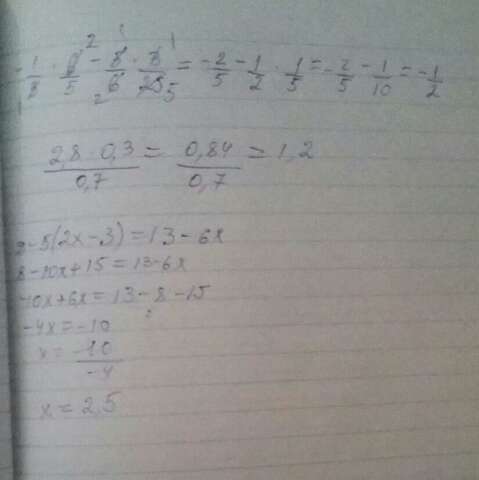 -1/3 · 6/5 - 5/6 · 3/25 = -2/5 - 1/2 · 1/5 = -2/5 - 1/10 = -1/2
2,8 · 0,3 / 0,7 = 0,84 / 0,7 = 1,2
8-5(2x-3)=13-6x
8-10x+15=13-6x
-10x+6x=13-8-15
-4x=-10
x= -10 / -4
x=2,5